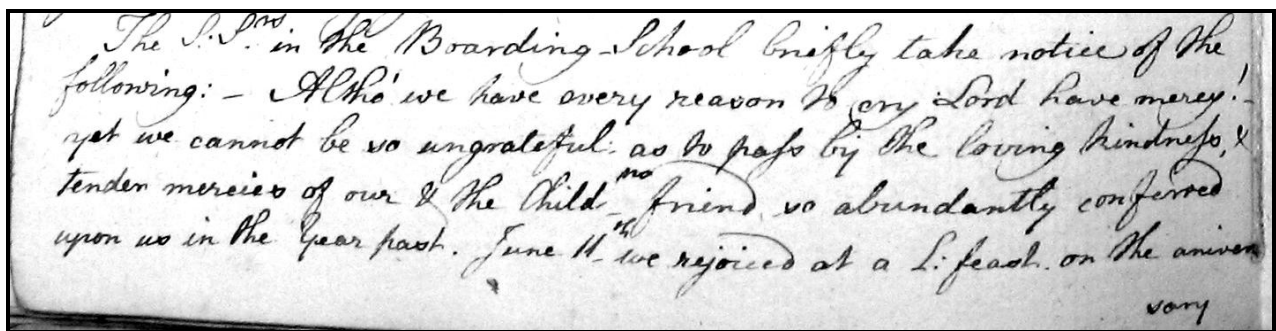 The S: S.rs in the Boarding-School briefly take notice of the
following: - Altho' we have every reason to cry Lord have mercy! -
yet we cannot be so ungrateful: as to pass by the loving kindness, &
tender mercies of our & the Child.ns friend, so abundantly conferred
upon us in the Year past. June 11th we rejoiced at a L: feast. on the aniver
sary